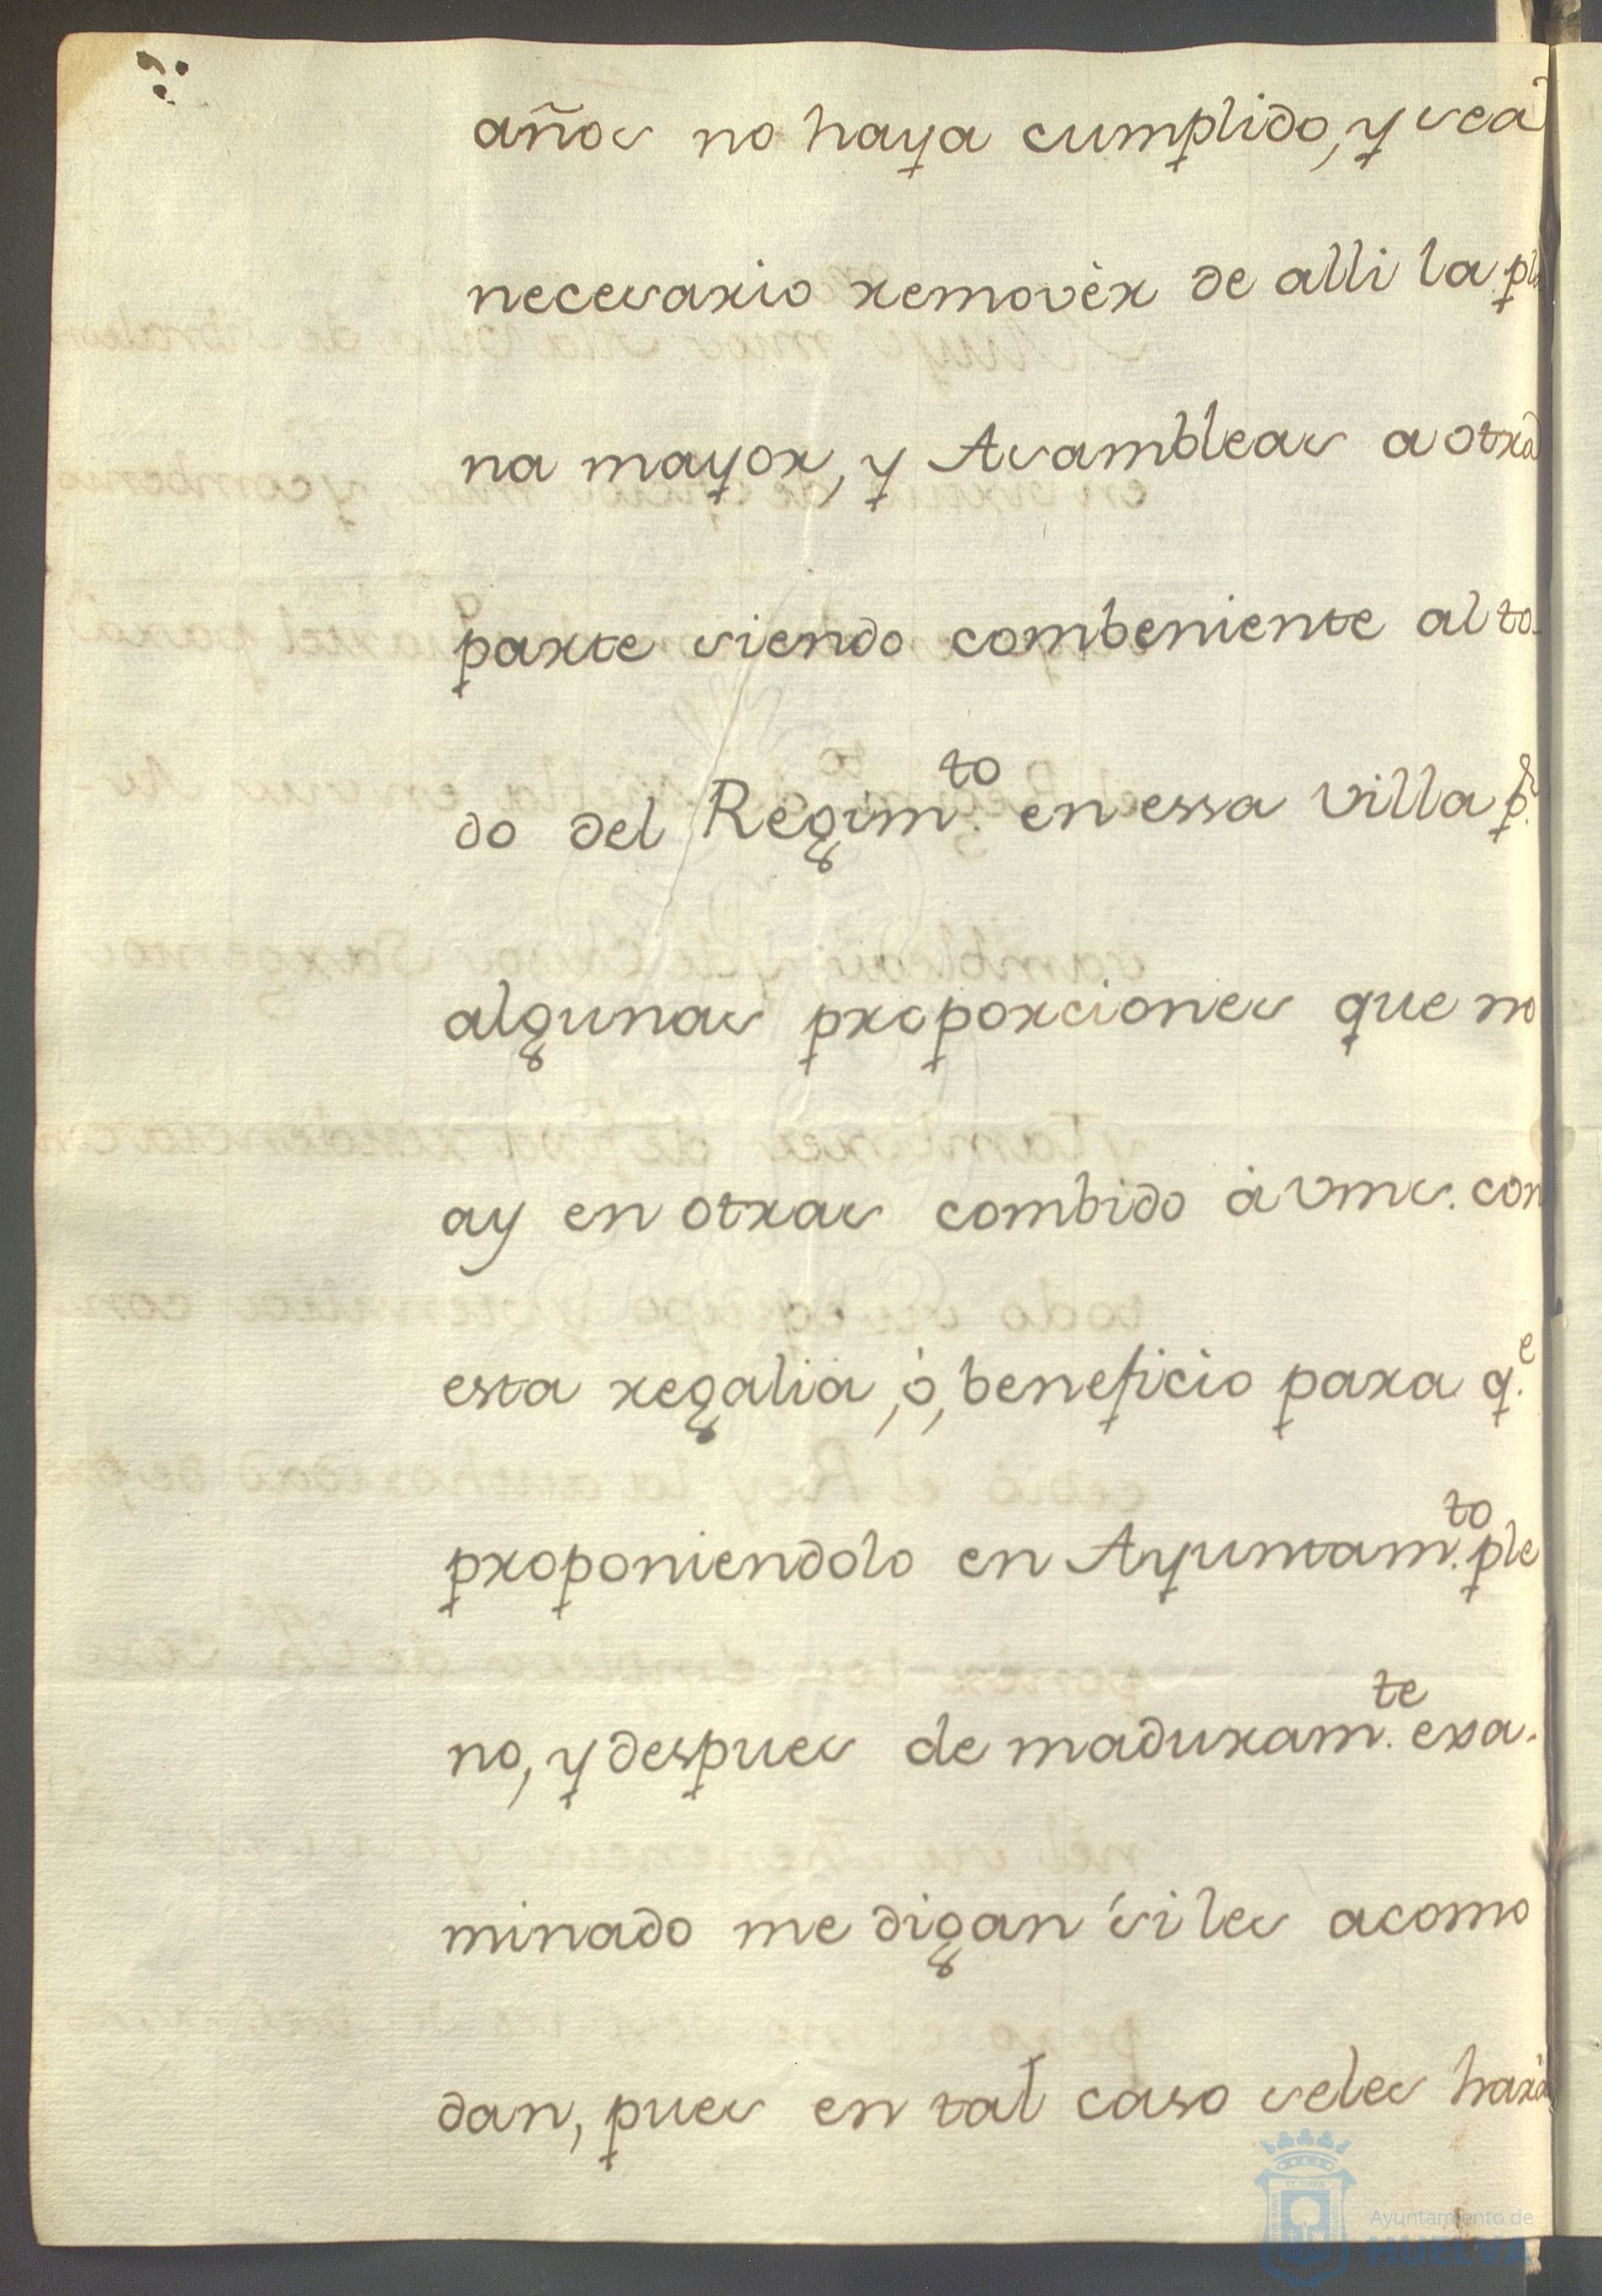 años no haya cumplido, y sea
necesario remover de alli la pla
na mayor, y Asambleas a otra
parte siendo combeniente al to-
do del Regim.to en essa villa p.r
algunas proporciones que no
ay en otras combido à vms. con
esta regalia, ó, beneficio para q.e
proponiendolo en Ayuntam.to ple
no, y despues de maduram.te exa-
minado me digan si les acomo
dan, pues en tal caso seles hará
Ayuntamiento de
HUELVA